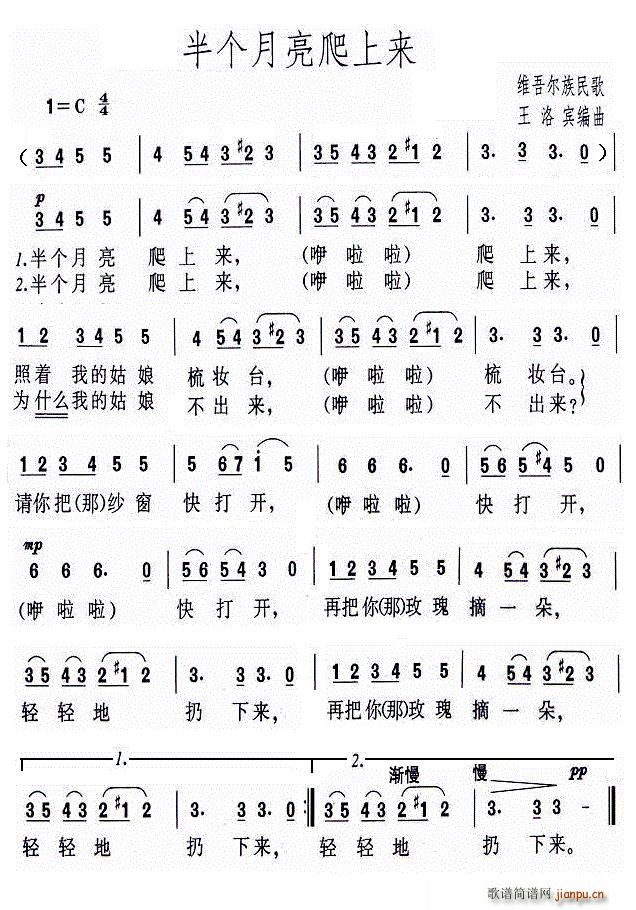 半个月亮爬上来
维吾尔族民歌
1=C 4/4
王洛宾编曲
(3 4 5 5 | 4 5 4 3 #2 3 | 3 5 4 3 2 #1 2 | 3. 3 3. 0)
p
3 4 5 5 | 4 5 4 3 #2 3 | 3 5 4 3 2 #1 2 | 3. 3 3. 0 |
1.半个月亮 爬上来, (咿啦啦) 爬上来,
2.半个月亮 爬上来, (咿啦啦) 爬上来,
1 2 3 4 5 5 | 4 5 4 3 #2 3 | 3 5 4 3 2 #1 2 | 3. 3 3. 0 |
照着我的姑娘 梳妆台, (咿啦啦) 梳妆台。
为什么我的姑娘 不出来, (咿啦啦) 不出来?
1 2 3 4 5 5 | 5 6 7 i 5 | 6 6 6. 0 | 5 6 5 #4 5 0 |
请你把(那)纱窗 快打开, (咿啦啦) 快打开,
mp
6 6 6. 0 | 5 6 5 4 3 0 | 1 2 3 4 5 5 | 4 5 4 3 #2 3 |
(咿啦啦) 快打开, 再把你(那)玫瑰 摘一朵,
3 5 4 3 2 #1 2 | 3. 3 3. 0 | 1 2 3 4 5 5 | 4 5 4 3 #2 3 |
轻轻地 扔下来, 再把你(那)玫瑰 摘一朵,
1. 2. 渐慢 慢 pp
3 5 4 3 2 #1 2 | 3. 3 3. 0 :‖ 3 5 4 3 2 #1 2 | 3. 3 3 - ‖
轻轻地 扔下来, 轻轻地 扔下来。
歌谱简谱网
jianpu.cn